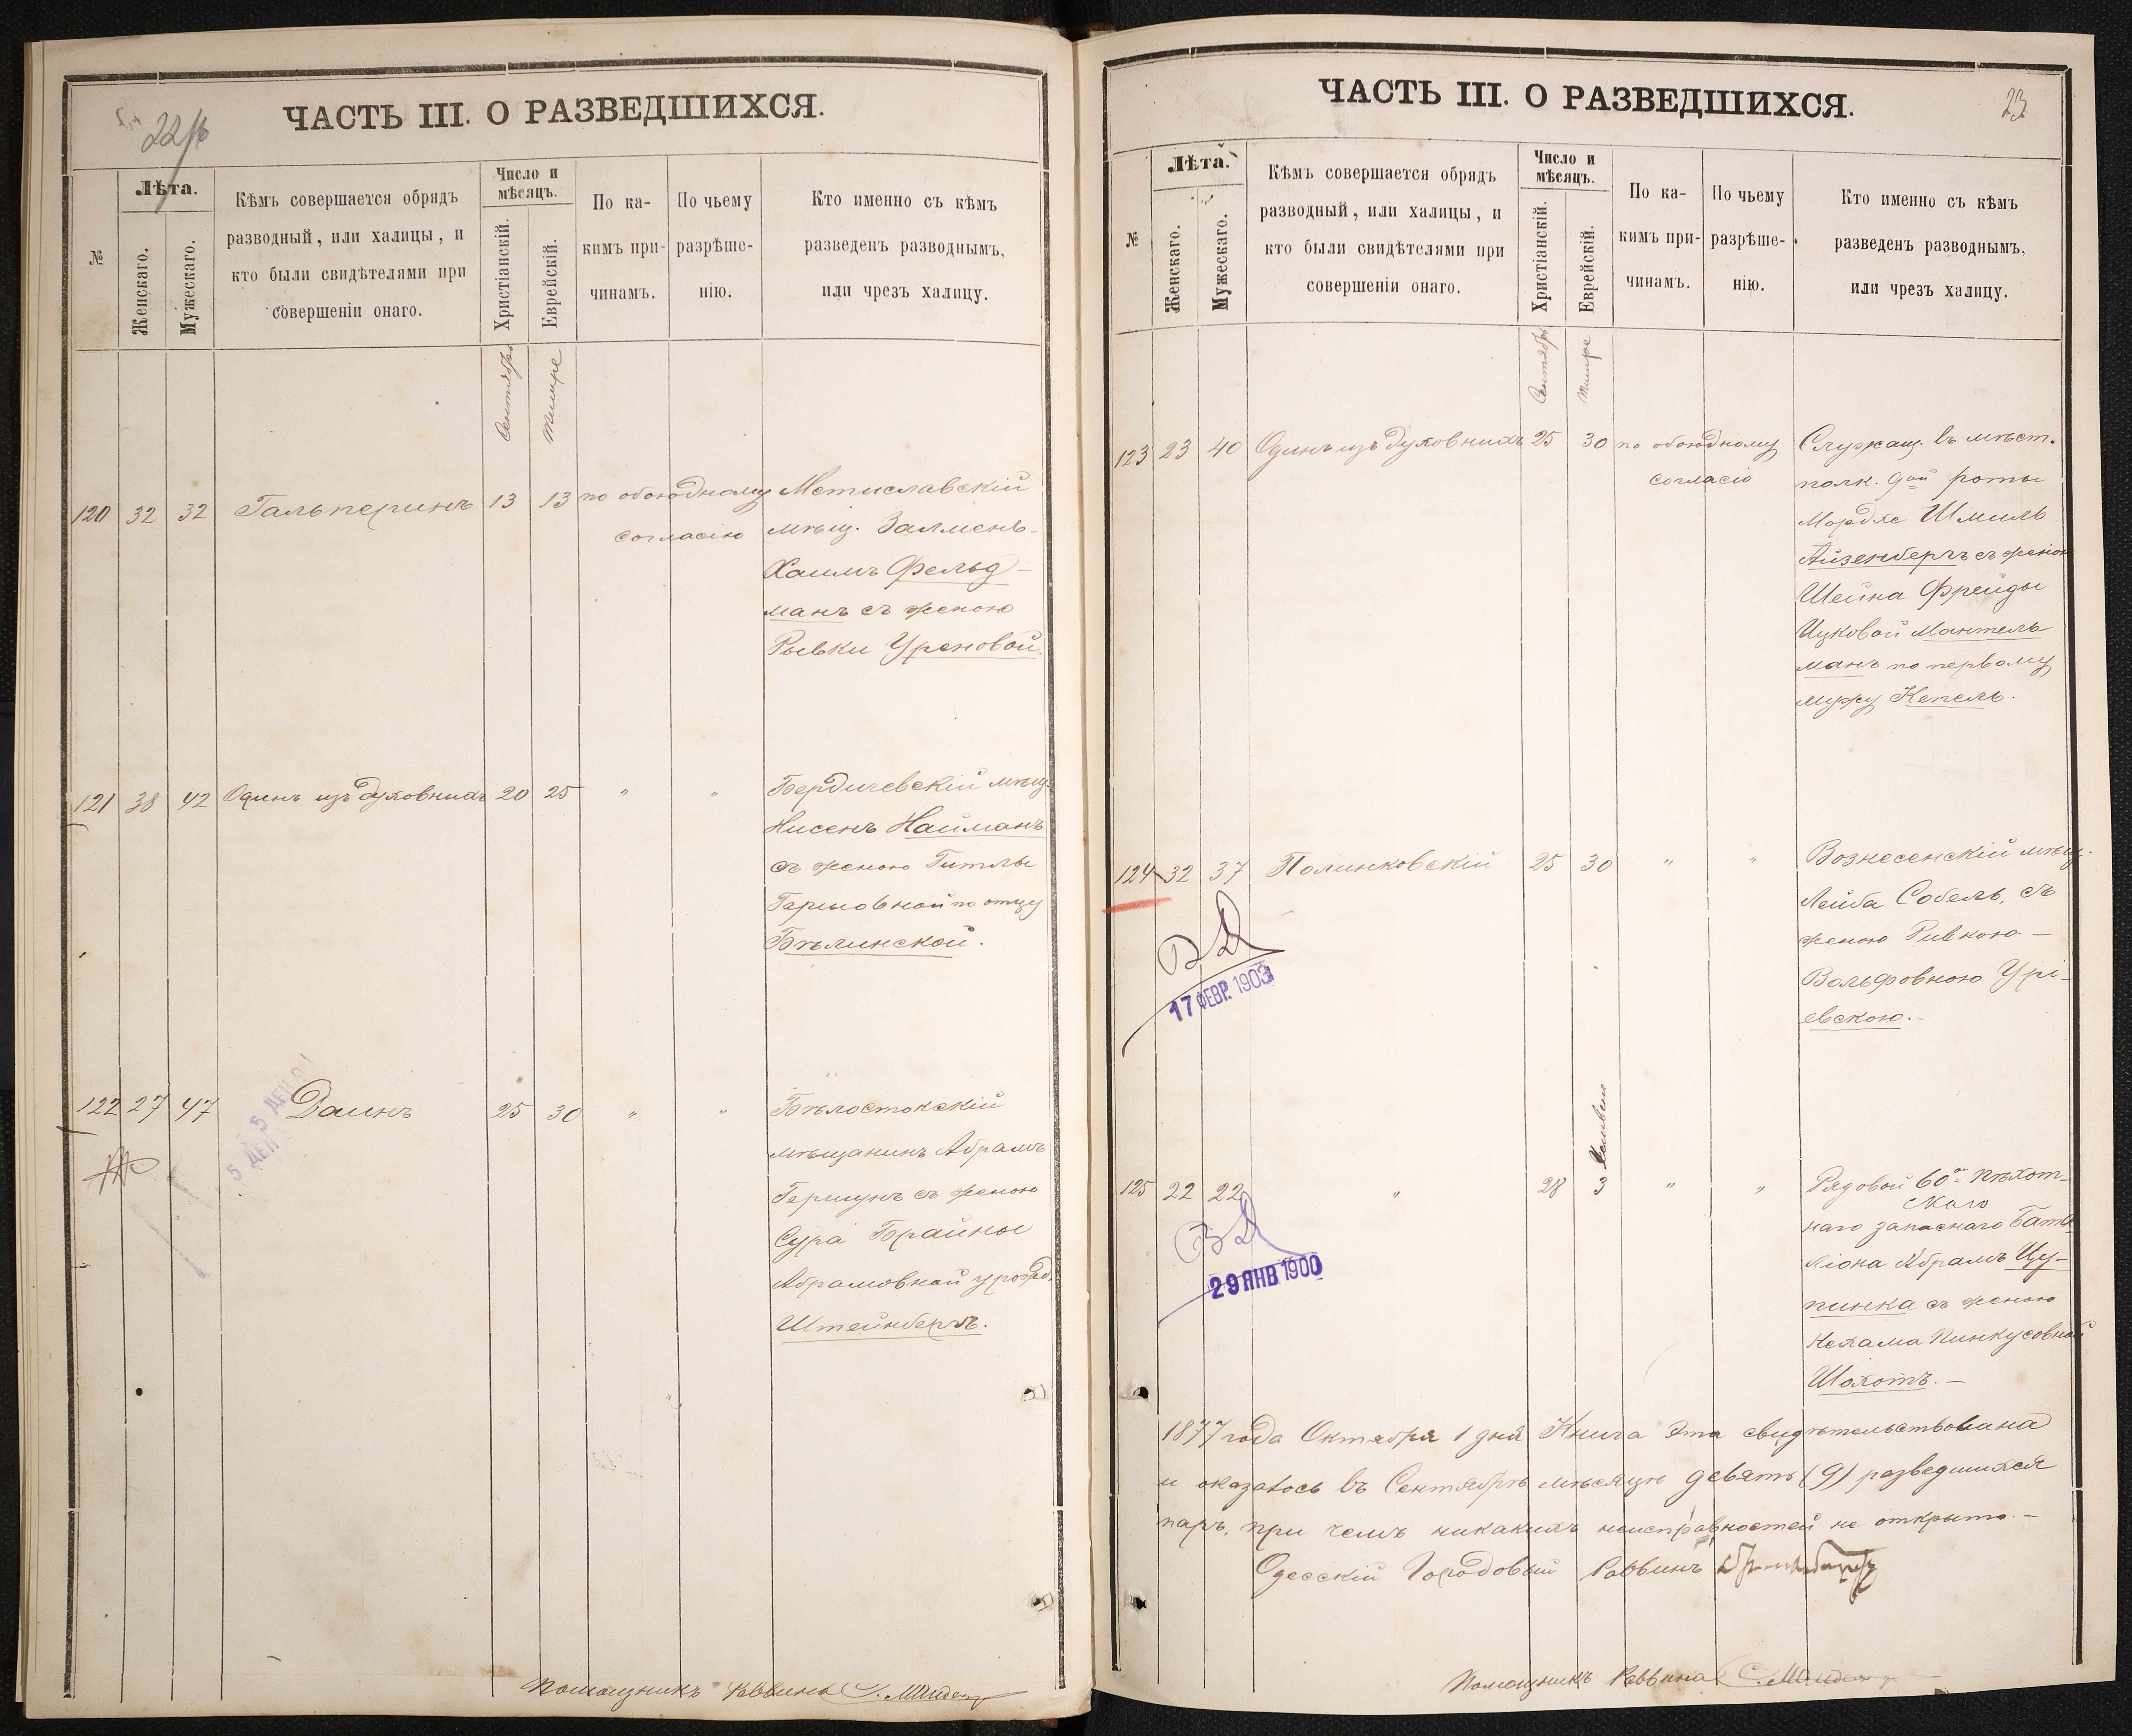 22/об
ЧАСТЬ III. О РАЗВЕДШИХСЯ.
№
Лѣта.
Женскаго.
Мужескаго.
Кѣмъ совершается обрядъ
разводный, или халицы, и
кто были свидѣтелями при
совершеніи онаго.
Число и
мѣсяцъ.
Христіанскій.
Еврейскій.
По ка-
кимъ при-
чинамъ.
По чьему
разрѣше-
нію.
Кто именно съ кѣмъ
разведенъ разводнымъ,
или чрезъ халицу.
Сентябрь
Тишре
120 32 32 Гальперинъ 13 13 по обоюдному Мстиславскій
согласію мѣщ. Залмень-
Хаимъ Фельд-
манъ съ женою
Рывки Уреновой.
121 38 42 Одинъ изъ духовныхъ 20 25 " " Бердичевскій мѣщ.
Нисенъ Найманъ
съ женою Гитлы
Гершовной по отцу
Бѣлинской.
122 27 47 Даинъ 25 30 " " Бѣлостокскій
мѣщанинъ Абрамъ
Гершунъ съ женою
Сура Брайны
Абрамовной урожд.
Штейнбергъ.
Помощникъ Раввина
23
ЧАСТЬ III. О РАЗВЕДШИХСЯ.
№
Лѣта.
Женскаго.
Мужескаго.
Кѣмъ совершается обрядъ
разводный, или халицы, и
кто были свидѣтелями при
совершеніи онаго.
Число и
мѣсяцъ.
Христіанскій.
Еврейскій.
По ка-
кимъ при-
чинамъ.
По чьему
разрѣше-
нію.
Кто именно съ кѣмъ
разведенъ разводнымъ,
или чрезъ халицу.
Сентябрь
Тишре
123 23 40 Одинъ изъ духовныхъ 25 30 по обоюдному Служащ. въ мѣст.
согласію полк. 9ой роты
Мордхе Шмиль
Айзенбергъ съ женою
Шейна Фрейды
Ицковой Мантель-
манъ по первому
мужу Кепель.
124 32 37 Полинковскій 25 30 " " Вознесенскій мѣщ.
Лейба Собель, съ
женою Ривкою -
Вольфовною Урі-
евскою.-
17 ФЕВР. 1903
Хешвенъ
125 22 22 " 28 3 " " Рядовой 60го пѣхот-
наго запаснаго Бата-
ліона Абрамъ Цу-
пинка съ женою
Нехама Пинкусовной
Шохотъ.-
29 ЯНВ 1900
1877 года Октября 1 дня Книга эта свидѣтельствована
и оказалось въ Сентябрѣ мѣсяцѣ девять (9) разведшихся
паръ, при чемъ никакихъ неисправностей не открыто.-
Одесскій Городовый Раввинъ
Помощникъ Раввина